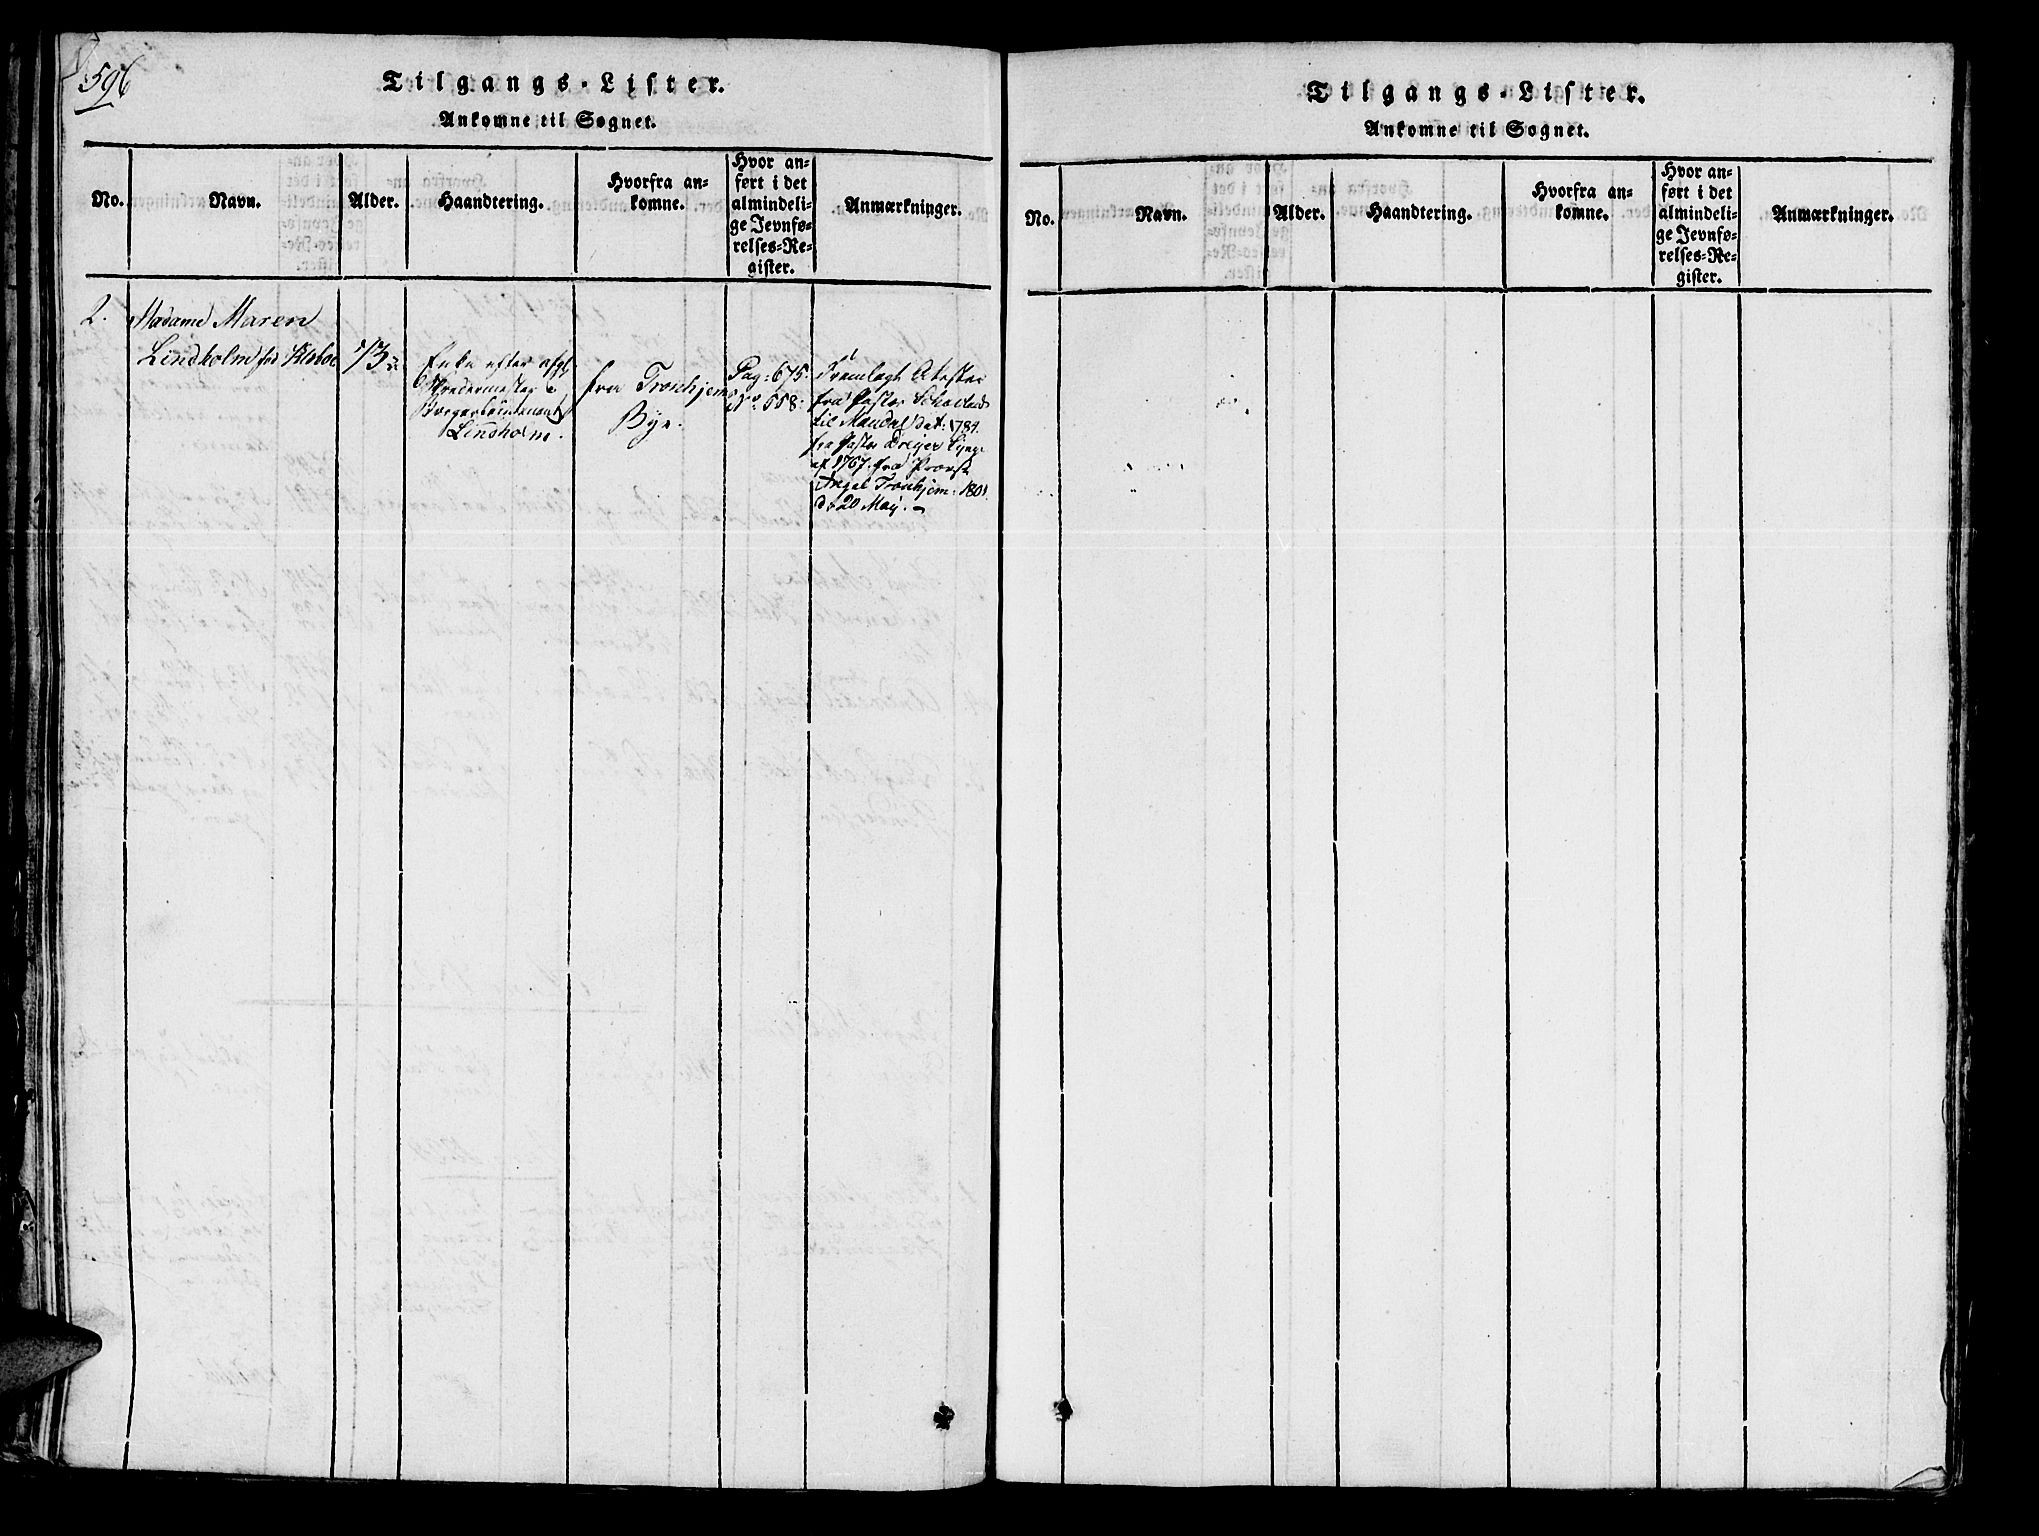 596
Tilgangs-Lister.
Ankomne til Sognet.
No.
Navn.
Alder.
Haandtering.
Hvorfra an-
komne.
Hvor an-
ført i det
almindeli-
ge Jevnfø-
relses-Re-
gister.
Anmærkninger.
2.
Madame Maren
Lindholm fød
73
Enke efter afg
Borgerleutenant
Lindholm.
fra Tronhjems
Bye.
Pag: 675.
No. 558.
Fremlagt Atester
fra Pastor
til Mandal dat: 1784.
fra Pastor Dreyer
af 1767. fra Provst
Angel Tronhjem 180
d. 20 May.
Tilgangs-Lister.
Ankomne til Sognet.
No.
Navn.
Alder.
Haandtering.
Hvorfra an-
komne.
Hvor an-
ført i det
almindeli-
ge Jevnfø-
relses-Re-
gister.
Anmærkninger.